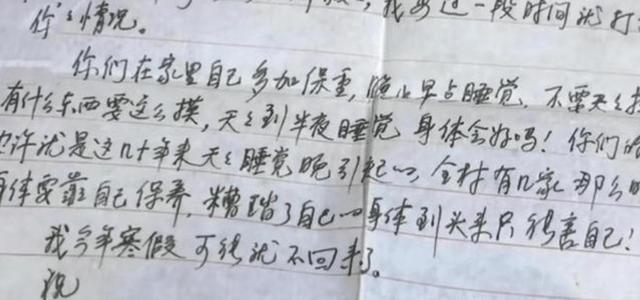 我要过一段时间就打
你〻情况。
你们在家里自己多加保重,晚上早点睡觉、不要天〻
有什么东西要这么摸,天〻到半夜睡觉 身体会好吗!你们
也许就是这几十年来天〻睡觉晚引起的,全村有几家那么
体要靠自己保养,糟蹋了自己的身体到头来只能害自己!
我今年寒假可能就不回来了。
祝